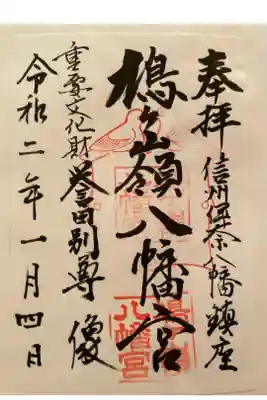 奉拝
信州伊奈八幡鎮座
鳩ヶ嶺八幡宮
重要文化財
誉田別尊
像
令和二年一月四日
八幡宮